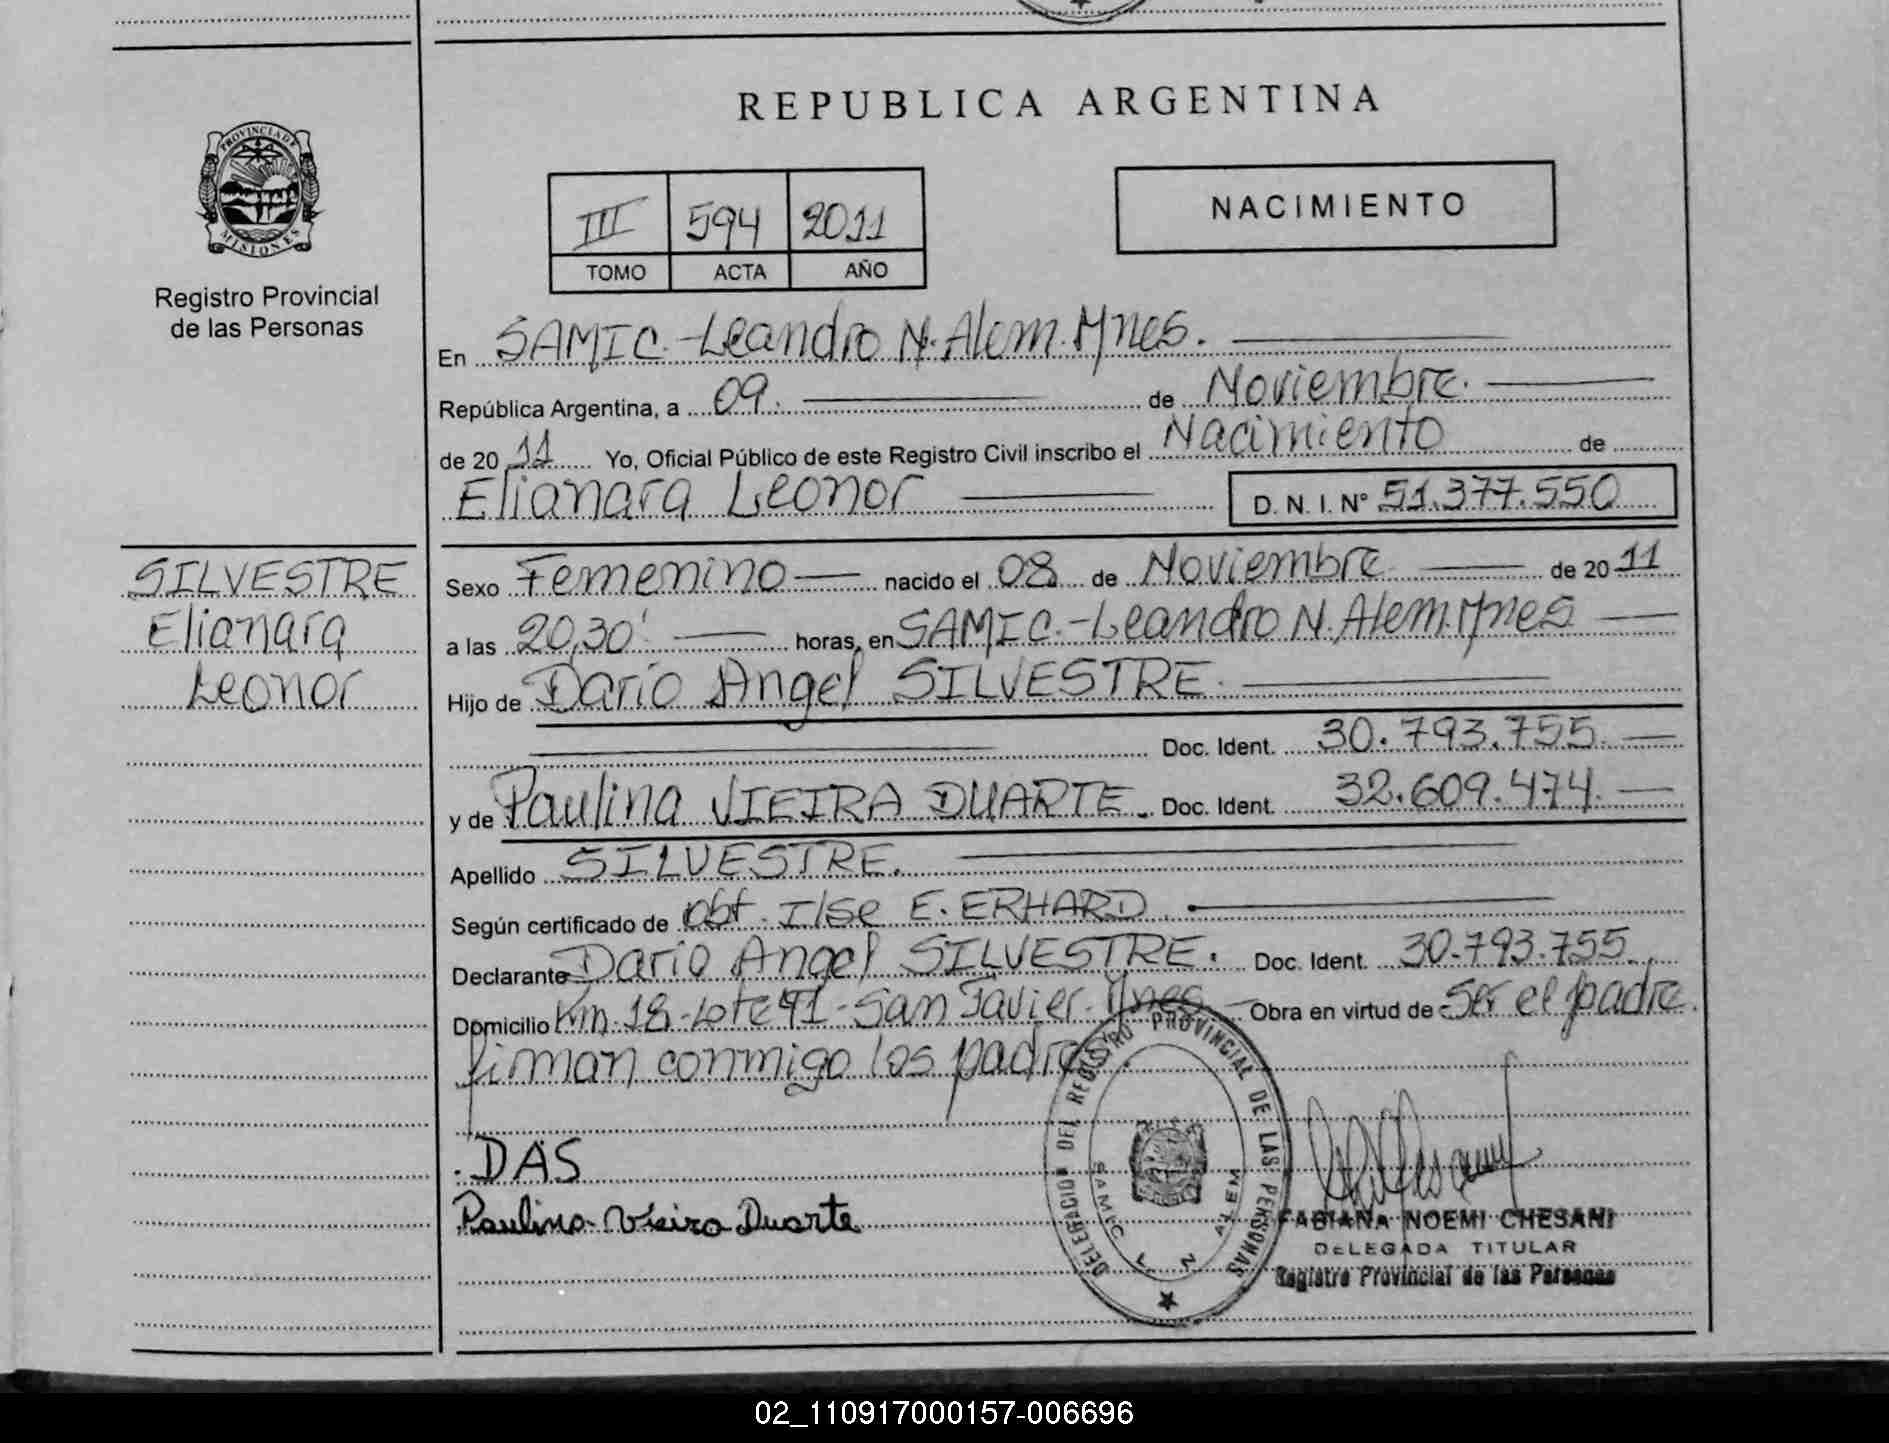 REPUBLICA ARGENTINA
PROVINCIA DE
MISIONES
Registro Provincial
de las Personas
III 594 2011
TOMO ACTA AÑO
NACIMIENTO
En SAMIC.-Leandro N. Alem. Mnes.
República Argentina, a 09. de Noviembre.
de 20 11 Yo, Oficial Público de este Registro Civil inscribo el Nacimiento de
Elianara Leonor D. N. I. N° 51.377.550
SILVESTRE
Elianara
Leonor
Sexo Femenino nacido el 08 de Noviembre de 20 11
a las 20,30' horas, en SAMIC.-Leandro N. Alem. Mnes
Hijo de Dario Angel SILVESTRE.
Doc. Ident. 30.793.755.
y de Paulina VIEIRA DUARTE. Doc. Ident. 32.609.474.
Apellido SILVESTRE.
Según certificado de obt. Ilse E. ERHARD
Declarante Dario Angel SILVESTRE. Doc. Ident. 30.793.755.
Domicilio Km. 18-Lote 91-San Javier. Mnes Obra en virtud de Ser el padre.
firman conmigo los padres.
DAS
Paulina Vieira Duarte
DELEGACION DEL REGISTRO PROVINCIAL DE LAS PERSONAS
SAMIC L N ALEM
FABIANA NOEMI CHESANI
DELEGADA TITULAR
Registro Provincial de las Personas
02_110917000157-006696